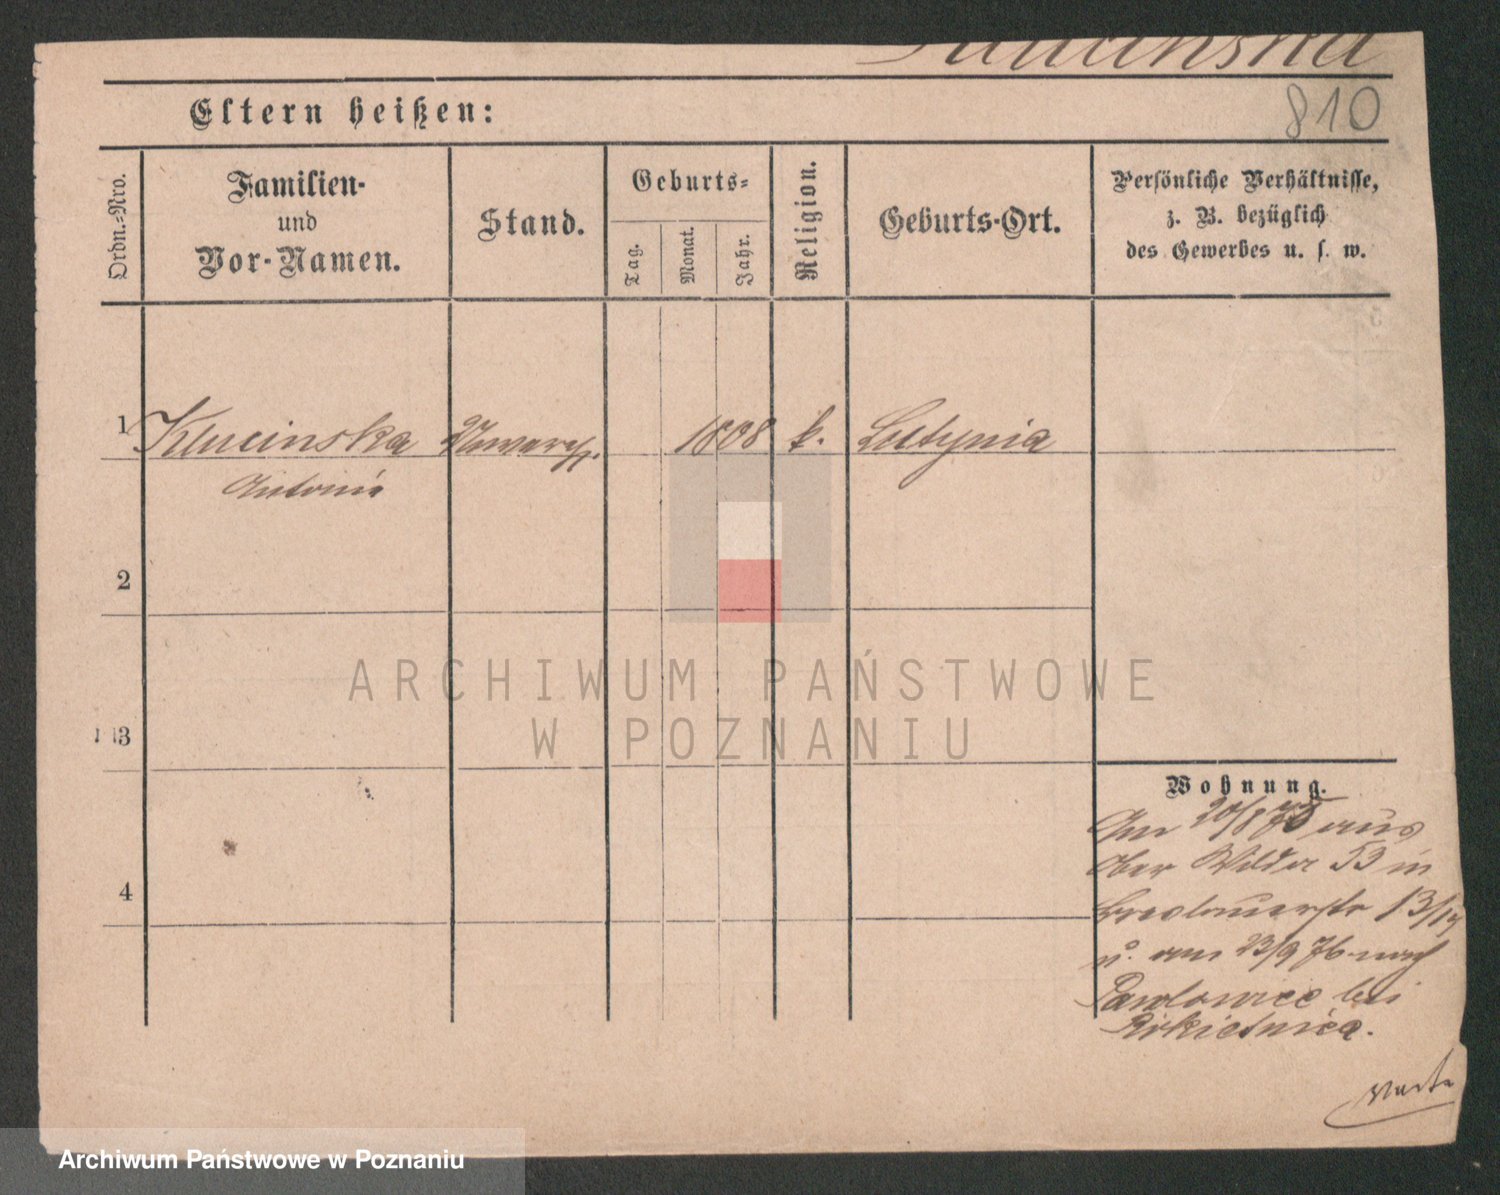 810
Eltern heißen:
Ordn.-Nro.
Familien-
und
Vor-Namen.
Stand.
Geburts-
Tag.
Monat.
Jahr.
Religion.
Geburts-Ort.
Persönliche Verhältnisse,
z. B. bezüglich
des Gewerbes u. s. w.
1
Klucinska
1808
k.
Lutynia
Antonie
2
ARCHIWUM PAŃSTWOWE
W POZNANIU
3
Wohnung.
Am 20/8 75 aus
Ober Wilda 53 in
Breslauerstr 13/14
4
u. am 23/9 76 nach
Pawlowice bei
Rokietnica.
Archiwum Państwowe w Poznaniu